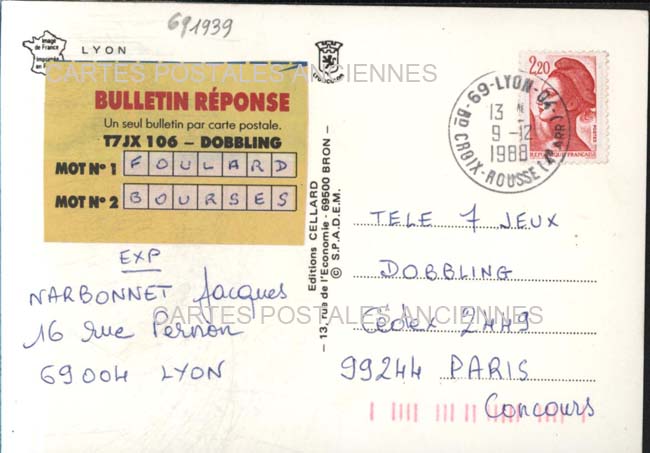 691939
Image
de France
Imprimée
en France
LYON
CARTES POSTALES ANCIENNES
BULLETIN RÉPONSE
Un seul bulletin par carte postale.
T7JX 106 – DOBBLING
MOT Nº 1 FOULARD
MOT Nº 2 BOURSES
EXP
NARBONNET Jacques
16 rue Pernon
69004 LYON
Editions CELLARD
– 13, rue de l'Economie - 69500 BRON –
© S.P.A.D.E.M.
2,20
POSTES
REPUBLIQUE FRANÇAISE
69-LYON-04
13 H
9-12
1988
BD CROIX-ROUSSE ARR
TELE 7 JEUX
DOBBLING
Cédex 2449
99244 PARIS
Concours
CARTES POSTALES ANCIENNES